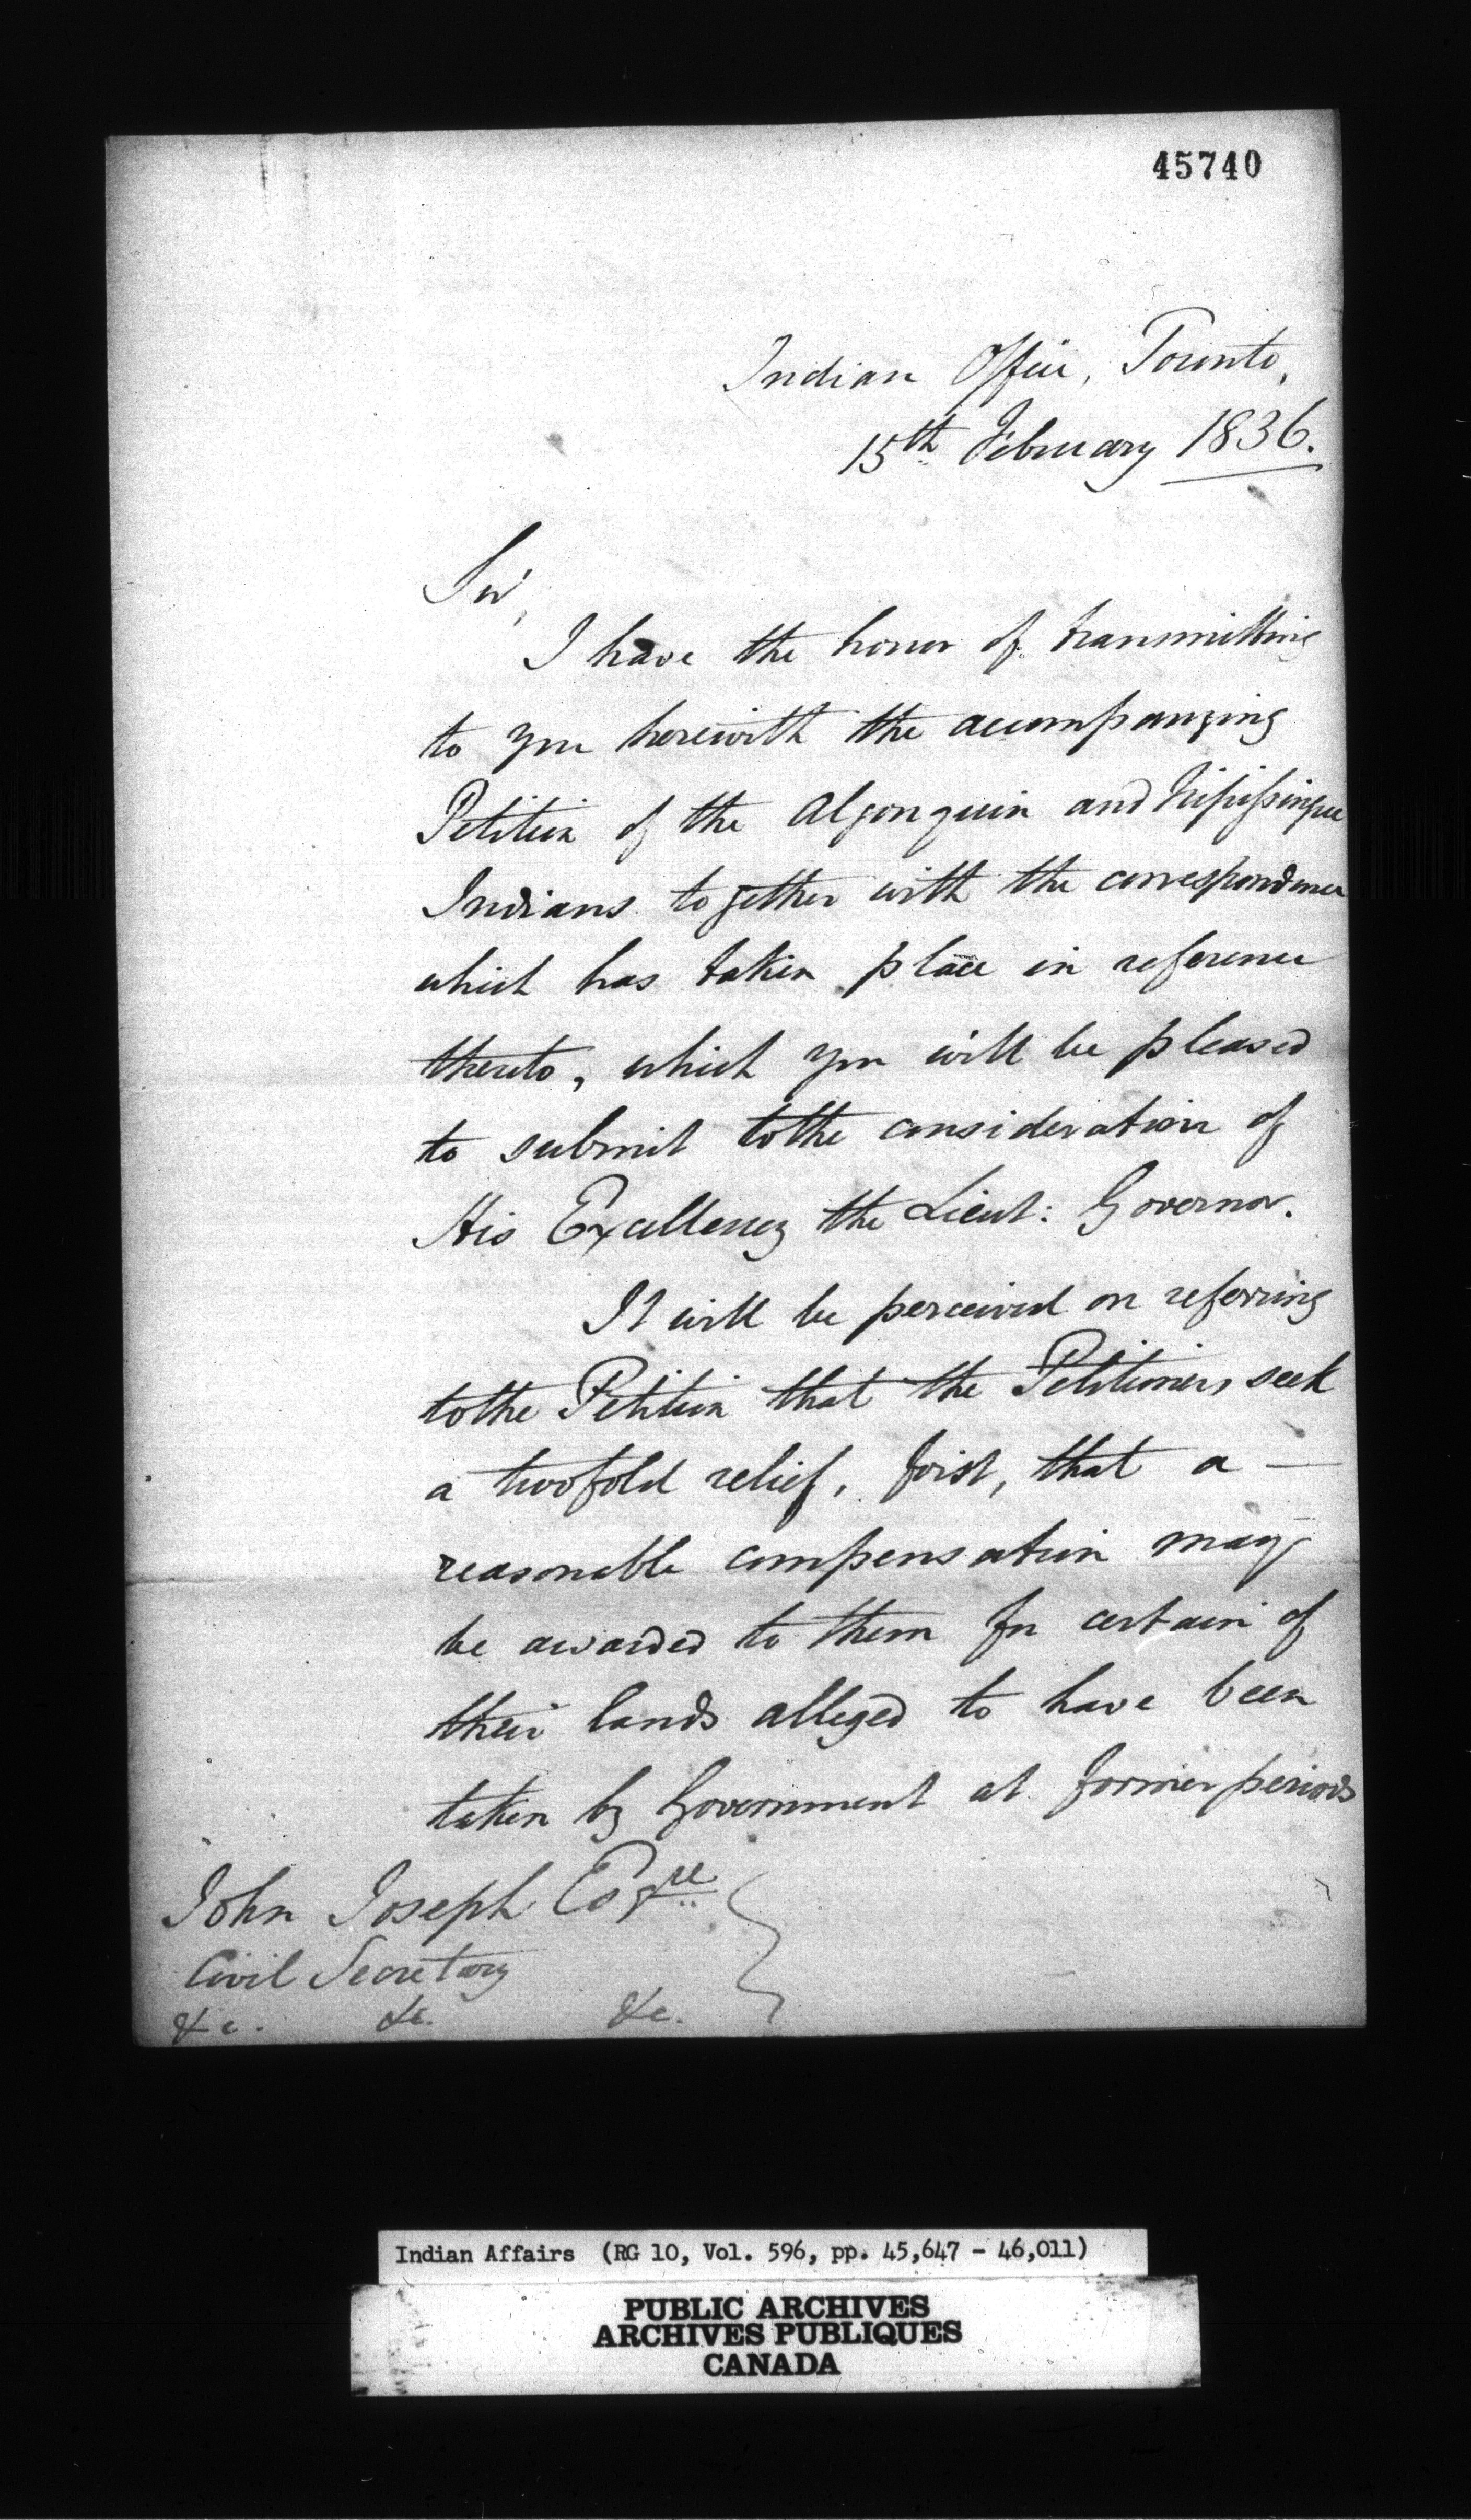 45740
Indian Office, Toronto,
15th February 1836.
Sir,
I have the honor of transmitting
to you herewith the accompanying
Petition of the Algonquin and Nipissingue
Indians together with the correspondence
which has taken place in reference
thereto, which you will be pleased
to submit to the consideration of
His Excellency the Lieut: Governor.
It will be perceived on referring
to the Petition that the Petitioners seek
a twofold relief, first, that a —
reasonable compensation may
be awarded to them for certain of
their lands alleged to have been
taken by Government at former periods
John Joseph Esqre
Civil Secretary
&c. &c. &c.
Indian Affairs (RG 10, Vol. 596, pp. 45,647 - 46,011)
PUBLIC ARCHIVES
ARCHIVES PUBLIQUES
CANADA